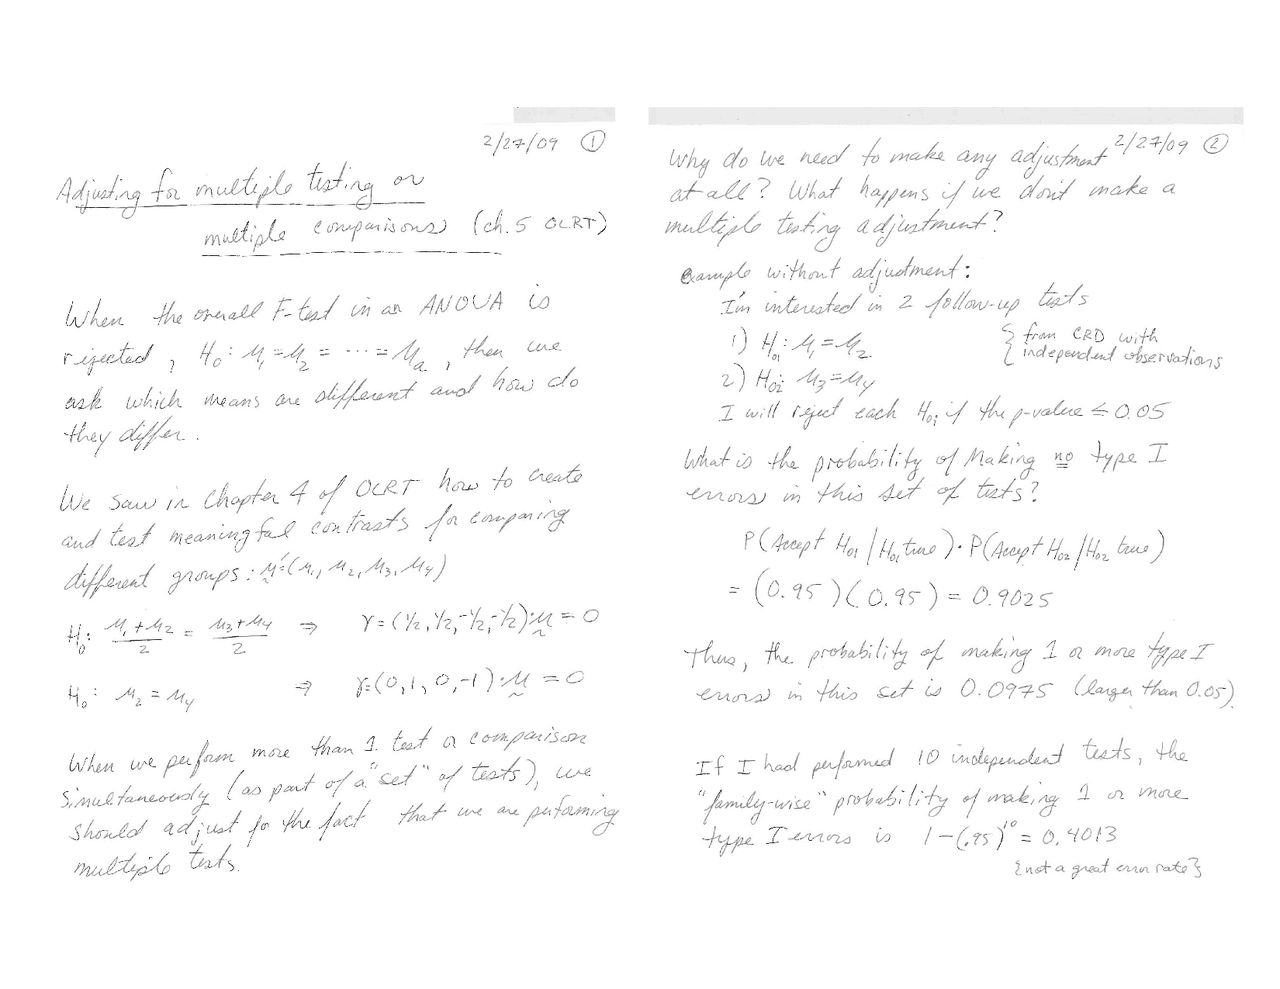 2/27/09 ①
Adjusting for multiple testing or
multiple comparisons (ch. 5 OLRT)
When the overall F-test in an ANOVA is
rejected, H₀: μ₁ = μ₂ = ··· = μₐ, then we
ask which means are different and how do
they differ.
We saw in Chapter 4 of OLRT how to create
and test meaningful contrasts for comparing
different groups: μ' = (μ₁, μ₂, μ₃, μ₄)
H₀: (μ₁+μ₂)/2 = (μ₃+μ₄)/2 ⇒ γ = (1/2, 1/2, -1/2, -1/2)·μ = 0
H₀: μ₂ = μ₄ ⇒ γ = (0, 1, 0, -1)·μ = 0
When we perform more than 1 test or comparison
simultaneously (as part of a "set" of tests), we
should adjust for the fact that we are performing
multiple tests.
2/27/09 ②
Why do we need to make any adjustment
at all? What happens if we don't make a
multiple testing adjustment?
example without adjustment:
I'm interested in 2 follow-up tests
1) H₀₁: μ₁ = μ₂
{from CRD with
{independent observations
2) H₀₂: μ₃ = μ₄
I will reject each H₀ᵢ if the p-value ≤ 0.05
What is the probability of Making no type I
errors in this set of tests?
P(Accept H₀₁ / H₀₁ true) · P(Accept H₀₂ / H₀₂ true)
= (0.95)(0.95) = 0.9025
Thus, the probability of making 1 or more type I
errors in this set is 0.0975 (larger than 0.05).
If I had performed 10 independent tests, the
"family-wise" probability of making 1 or more
type I errors is 1-(.95)¹⁰ = 0.4013
{not a great error rate}